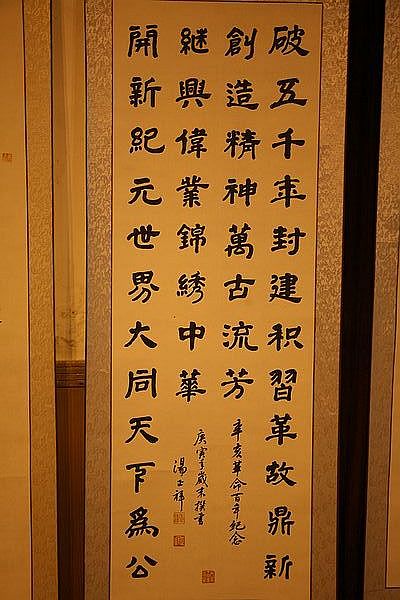 破五千年封建积習革故鼎新
創造精神萬古流芳
継興偉業錦綉中華
開新紀元世界大同天下爲公
辛亥革命百年纪念
庚寅年歲末撰書